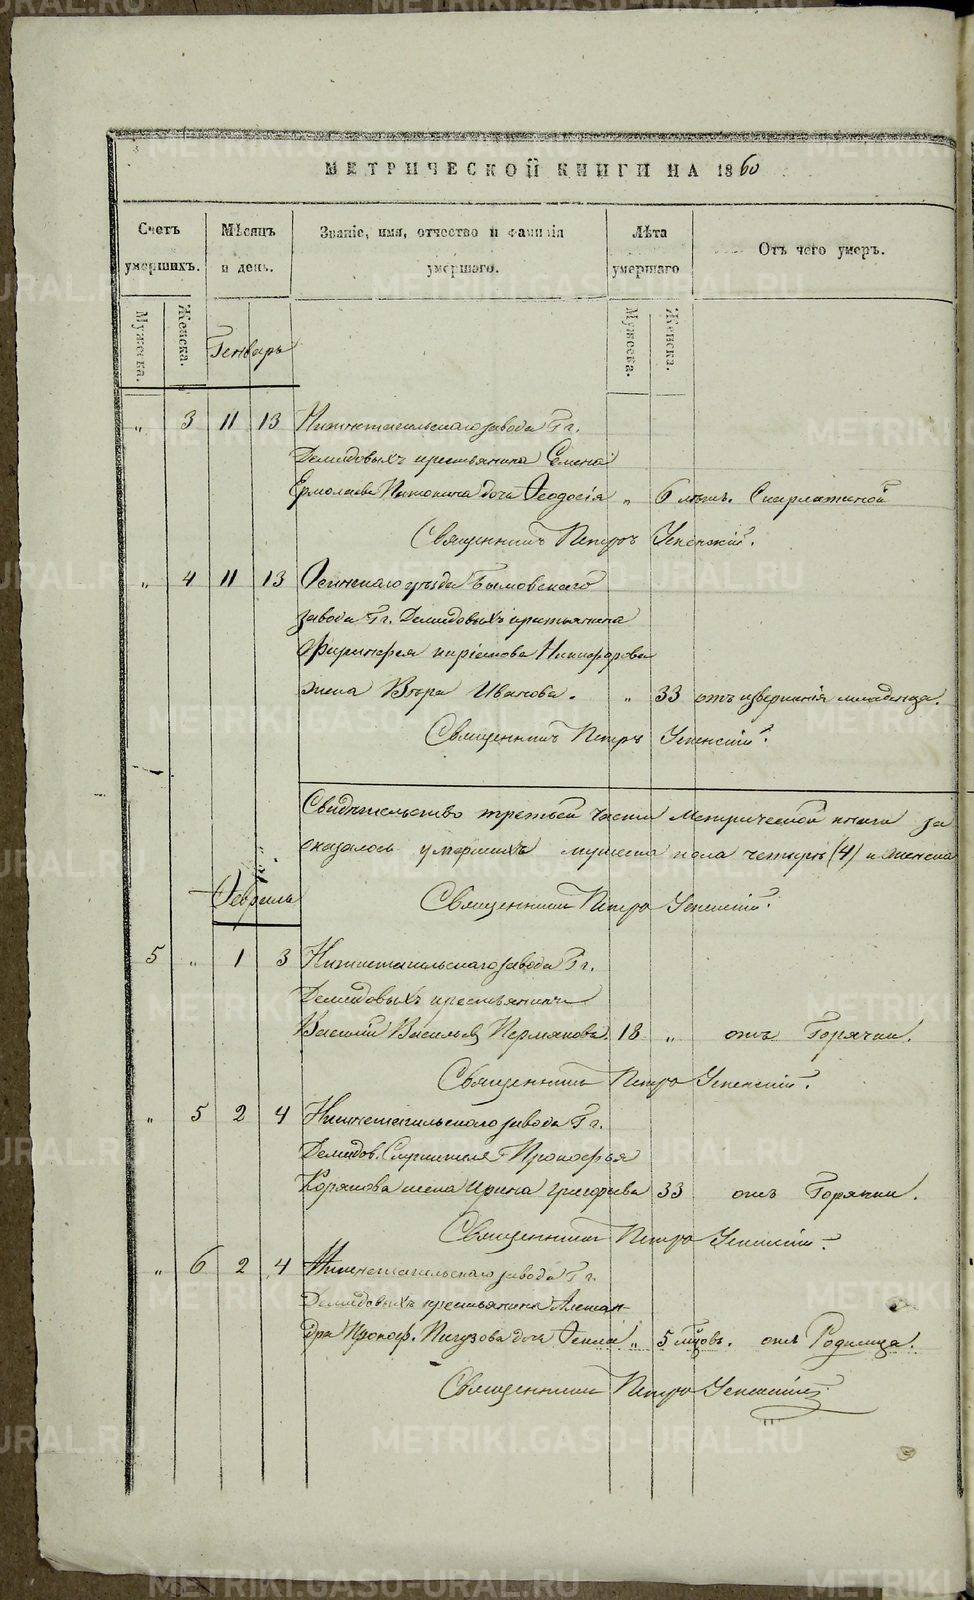 МЕТРИЧЕСКОЙ КНИГИ НА 1860
Счетъ умершихъ.
Мѣсяцъ и день.
Званіе, имя, отчество и фамилія умершаго.
Лѣта умершаго
Отъ чего умеръ.
Мужеска. Женска.
Мужеска. Женска.
Генварь
„ 3 11 13 Нижнетагильскаго завода Гг.
Демидовыхъ крестьянина Семена
Ермолаева дочь Ѳеодосія „ 6 лѣтъ. Скарлатиной
Священникъ Петръ Успенскій.
„ 4 11 13 Осинскаго уѣзда Бымовскаго
завода Гг. Демидовыхъ крестьянина
Никифорова
жена Вѣра Иванова. „ 33 отъ изверженія младенца.
Священникъ Петръ Успенскій.
Свидѣтельство третьей части Метрической книги за
оказалось умершихъ мужеска пола четыре (4) и женска
Февраль
Священникъ Петръ Успенскій.
5 „ 1 3 Нижнетагильскаго завода Гг.
Демидовыхъ крестьянинъ
Василій Васильевъ Пермяковъ. 18 „ отъ Горячки.
Священникъ Петръ Успенскій.
„ 5 2 4 Нижнетагильскаго завода Гг.
Демидов. Служителя Прокофья
Корякова жена Ирина Григорьева 33 отъ Горячки.
Священникъ Петръ Успенскій.
„ 6 2 4 Нижнетагильскаго завода Гг.
Демидовыхъ крестьянина Алексан
дра Прокоф. Пигузова дочь Ѳекла „ 5 мцовъ. отъ Родимца.
Священникъ Петръ Успенскій
METRIKI.GASO-URAL.RU